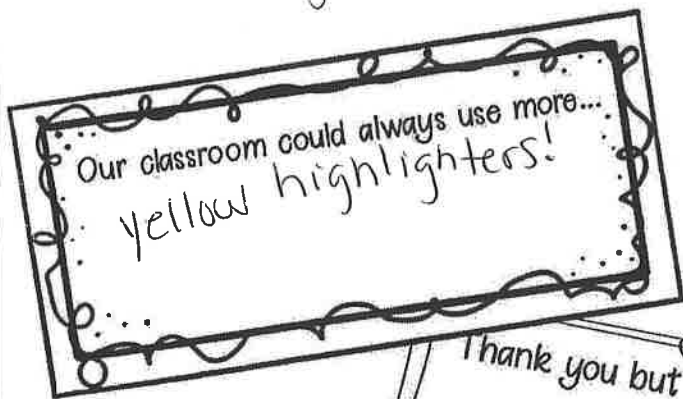 Our classroom could always use more...
yellow highlighters!
Thank you but